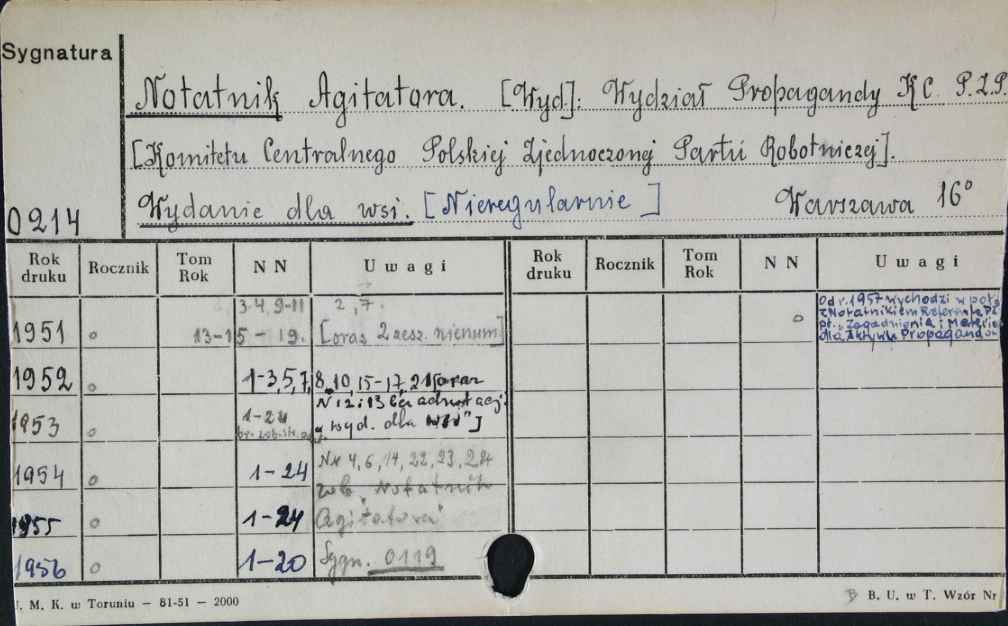 Sygnatura
Notatnik Agitatora. [Wyd]: Wydział Propagandy KC P.Z.P.
[Komitetu Centralnego Polskiej Zjednoczonej Partii Robotniczej].
0214
Wydanie dla wsi. [Nieregularnie] Warszawa 16°
Rok druku Rocznik Tom Rok NN Uwagi Rok druku Rocznik Tom Rok NN Uwagi
3-4, 9-11 2, 7.
1951 o 13-15 - 19. [oraz 2 zesz. nienum] o
Od r. 1957 wychodzi w poł.
z Notatnikiem
pt. "Zagadnienia i
dla Propagandow
1952 o 1-3, 5, 7, 8, 10, 15-17, 21 [oraz
N 12 i 13 bez adnotacji
1953 o 1-24 "wyd. dla wsi"]
1954 o 1-24 Nr 4, 6, 14, 22, 23, 24
"Notatnik
1955 o 1-24 Agitatora"
1956 o 1-20 Sygn. 0119
M. K. w Toruniu — 81-51 — 2000 B. U. w T. Wzór Nr